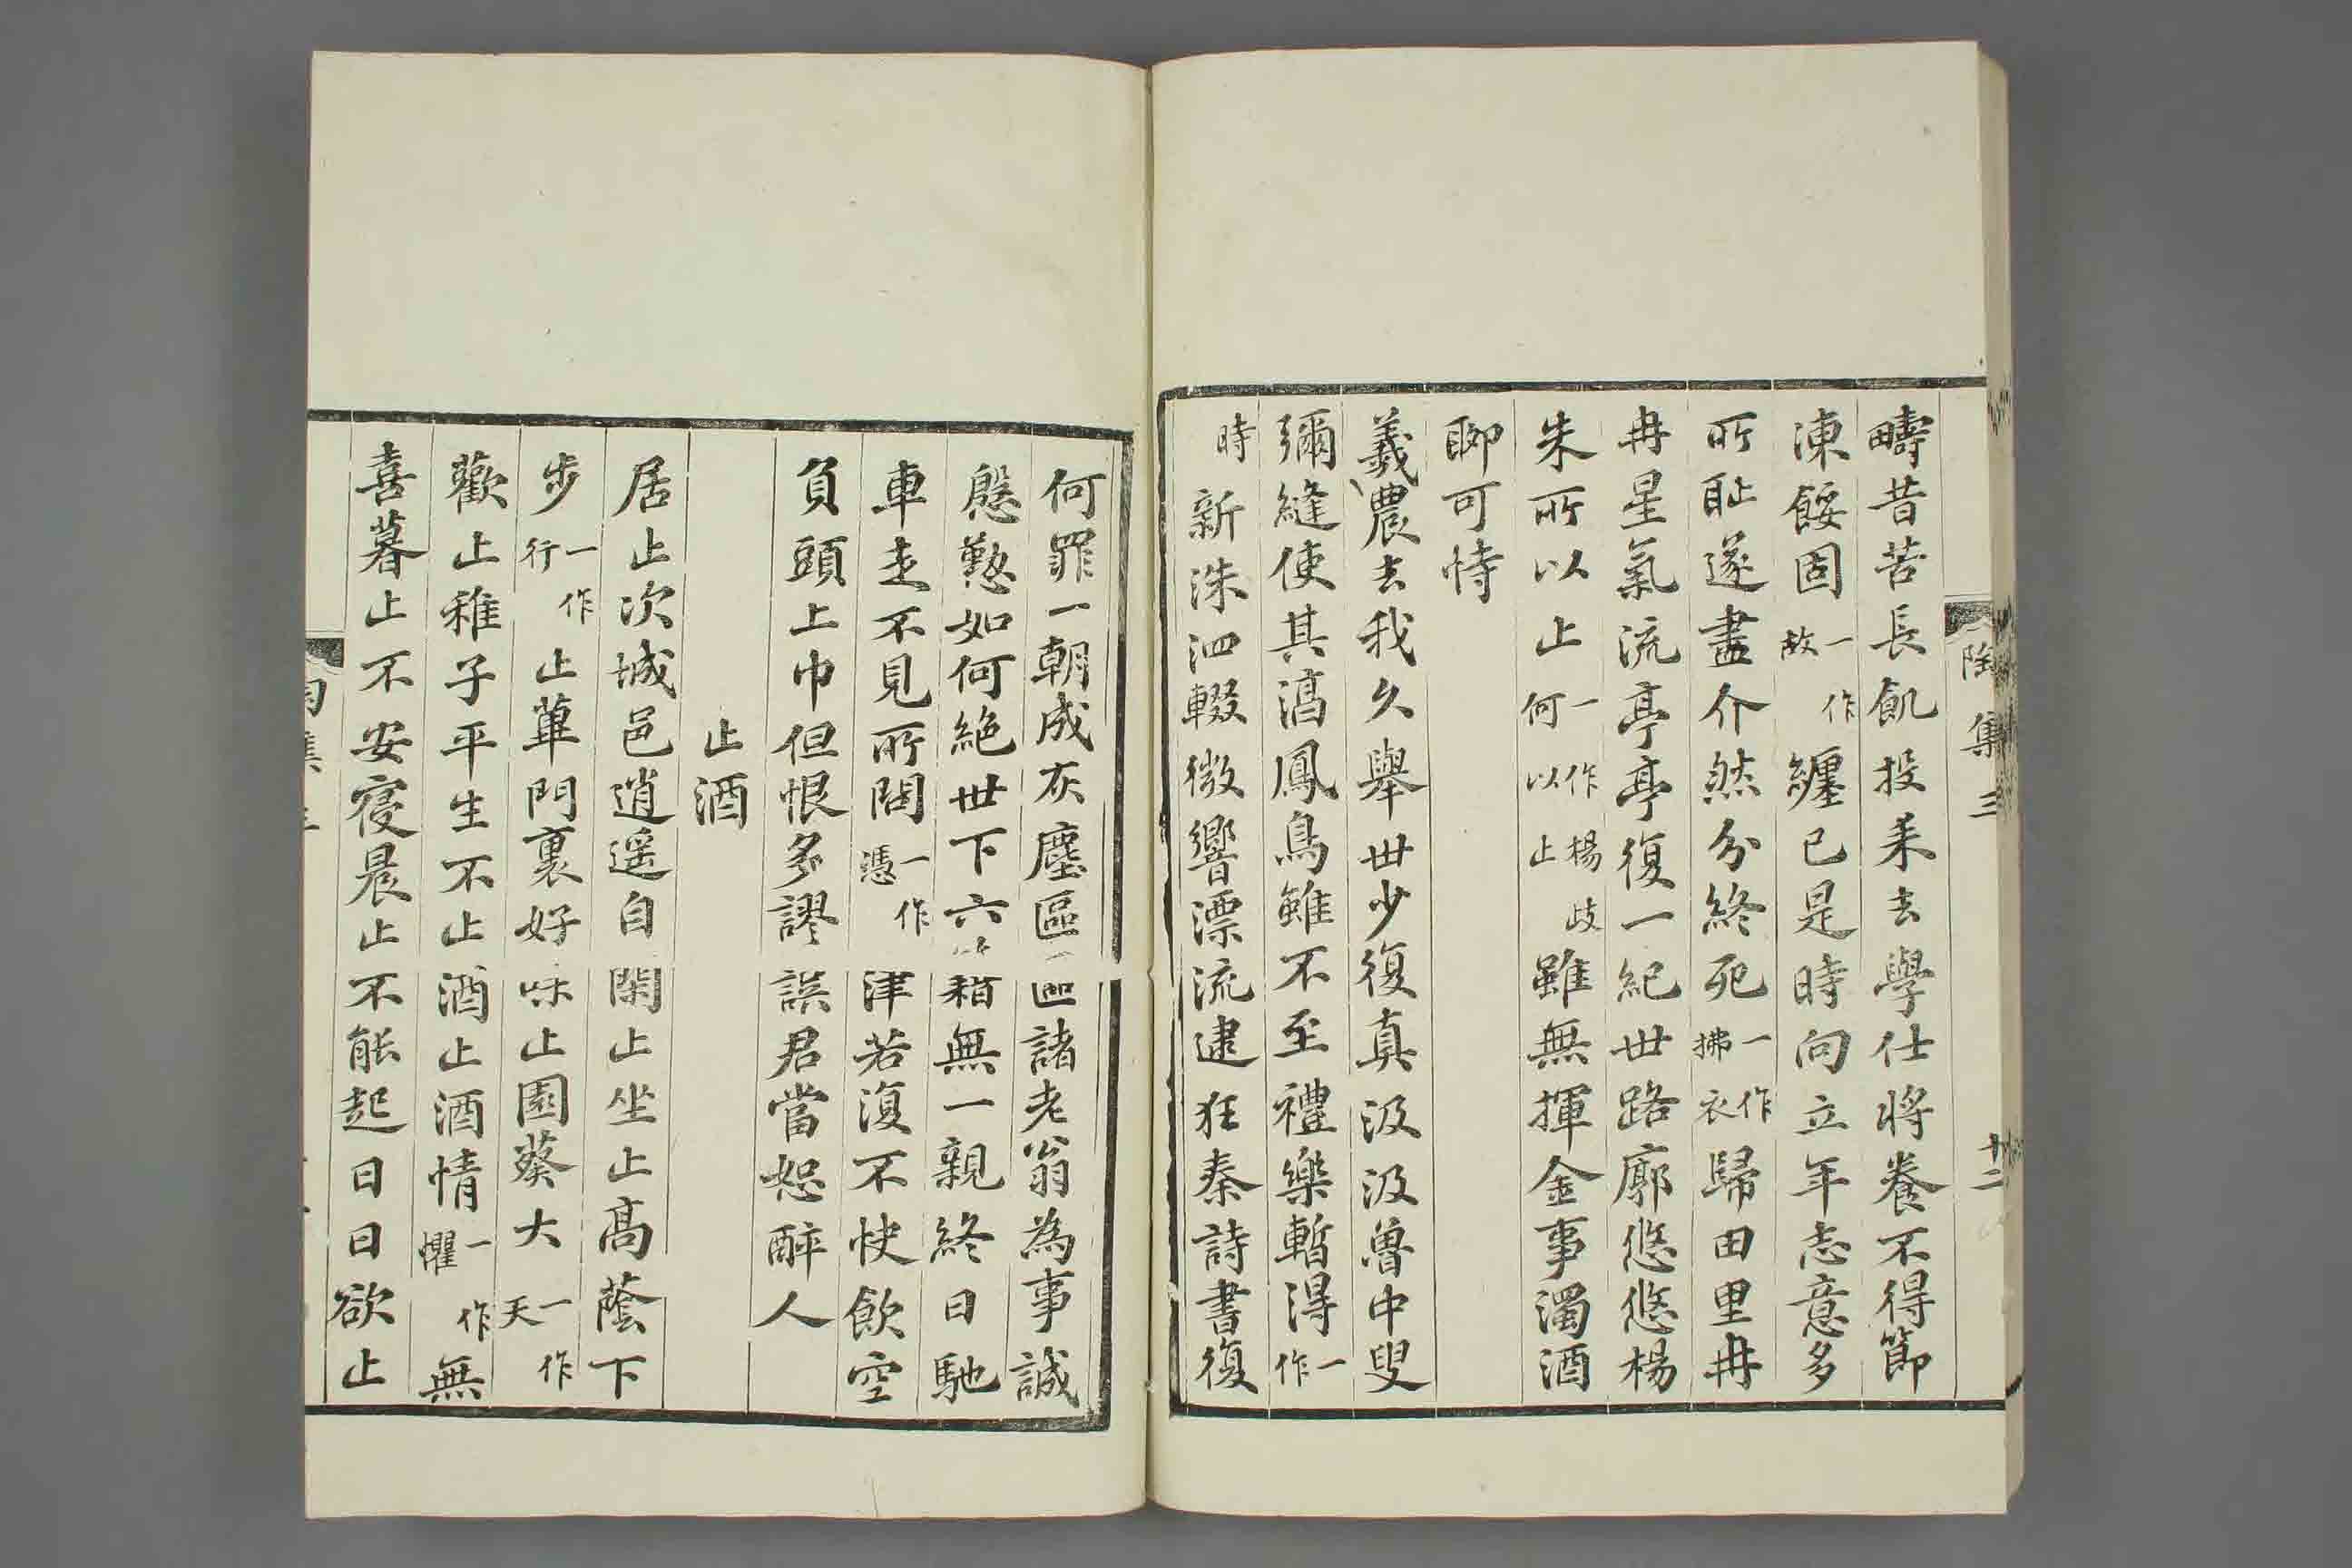 疇昔苦長飢投耒去學仕將養不得節
凍餒固一作故纏己是時向立年志意多
所恥遂盡介然分終死一作拂衣歸田里冉
冉星氣流亭亭復一紀世路廓悠悠楊
朱所以止一作楊歧何以止雖無揮金事濁酒
聊可恃
羲農去我久舉世少復真汲汲魯中叟
彌縫使其淳鳳鳥雖不至禮樂暫得一作
時新洙泗輟微響漂流逮狂秦詩書復
陶集三
廿二
何罪一朝成灰塵區區諸老翁為事誠
殷懃如何絕世下六籍無一親終日馳
車走不見所問一作憑津若復不快飲空
負頭上巾但恨多謬誤君當恕醉人
止酒
居止次城邑逍遥自閑止坐止高蔭下
步一作行止蓽門裏好味止園葵大一作天
歡止稚子平生不止酒止酒情一作懼無
喜暮止不安寑晨止不能起日日欲止